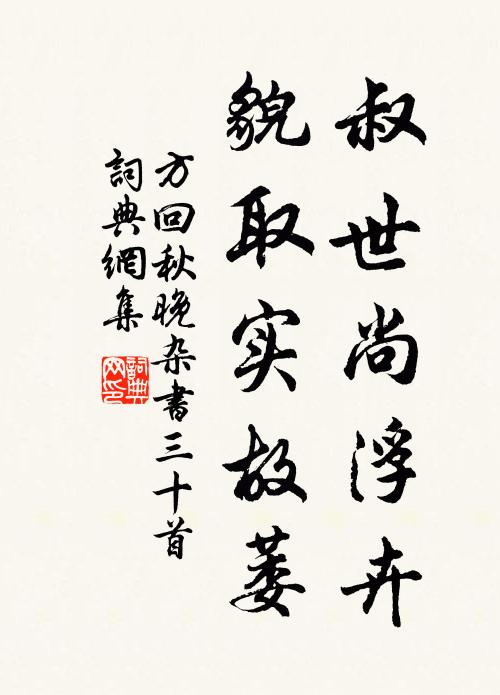 叔世尚浮卉
貌取实故萎
方回秋晚杂書三十首
詞典網集
詞典网印